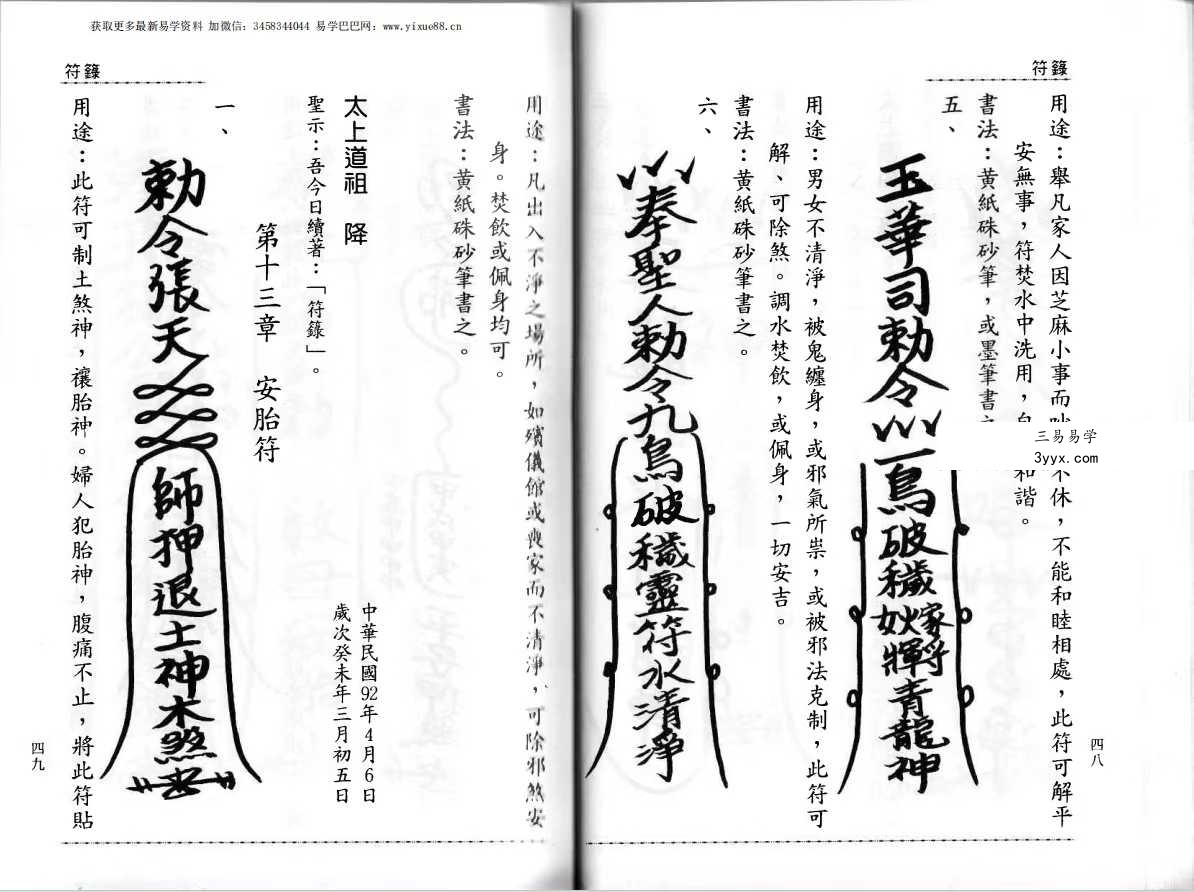 获取更多最新易学资料 加微信：3458344044 易学巴巴网：www.yixue88.cn
符籙
用途：舉凡家人因芝麻小事而吵不休，不能和睦相處，此符可解平
安無事，符焚水中洗用，和諧。
書法：黃紙硃砂筆，或墨筆書之
五、
玉華司勅令一鳥破穢
青龍神
三易易学
3yyx.com
用途：男女不清淨，被鬼纏身，或邪氣所祟，或被邪法克制，此符可
解、可除煞。調水焚飲，或佩身，一切安吉。
書法：黃紙硃砂筆書之。
六、
奉聖人勅令九鳥破穢靈符水清淨
四八
符籙
用途：凡出入不淨之場所，如殯儀館或喪家而不清淨，可除邪煞安
身。焚飲或佩身均可。
書法：黃紙硃砂筆書之。
太上道祖 降
聖示：吾今日續著：「符籙」。
中華民國92年4月6日
歲次癸未年三月初五日
第十三章 安胎符
一、
勅令張天師押退土神木煞
用途：此符可制土煞神，禳胎神。婦人犯胎神，腹痛不止，將此符貼
四九